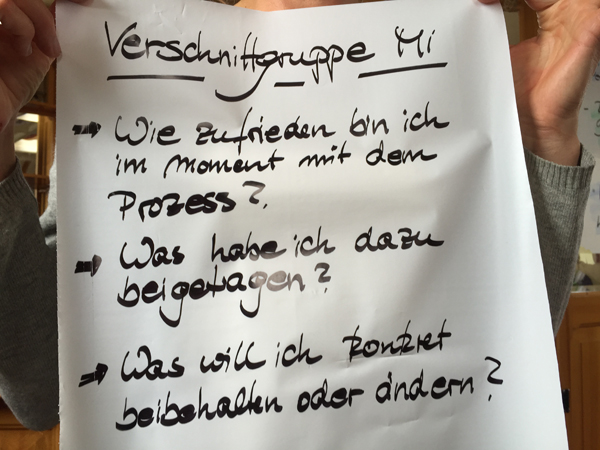 Verschnittgruppe Mi
→ Wie zufrieden bin ich
im Moment mit dem
Prozess?
→ Was habe ich dazu
beigetragen?
→ Was will ich konkret
beibehalten oder ändern?